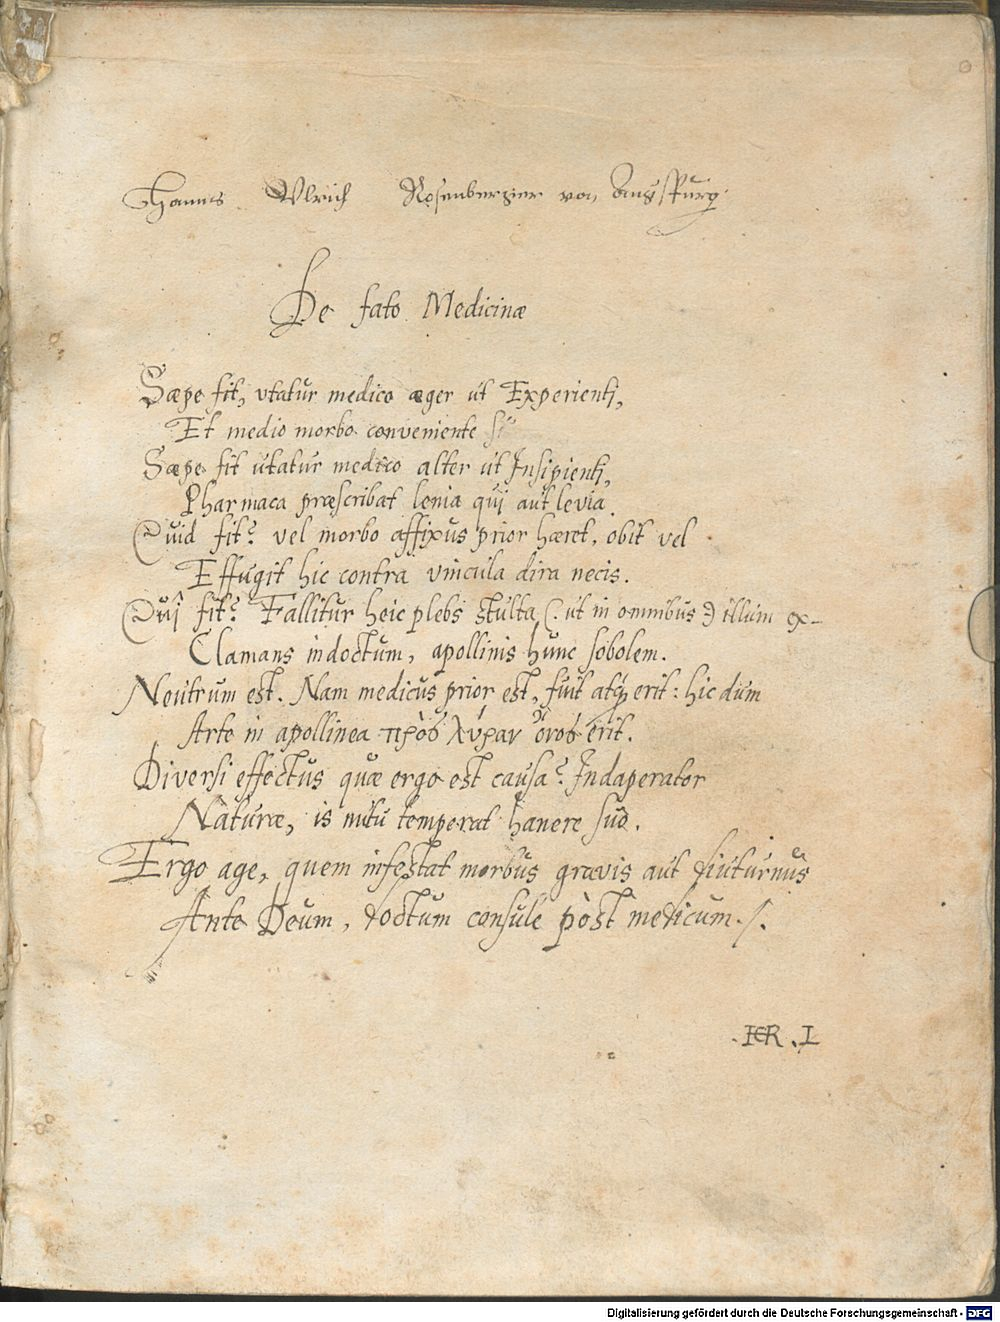 Hanns Ulrich Rosenberger von Augspurg.
De fato Medicinæ
Sæpe fit, vtatur medico æger ut Experienti,
Et medio morbo conveniente
Sæpe fit utatur medico alter ut Insipienti,
Pharmaca præscribat lenia qui aut levia.
Quid fit? vel morbo affixus prior hæret, obit vel
Effugit hic contra vincula dira necis.
Qui fit? Fallitur heic plebs stulta (ut in omnibus) illum ex-
Clamans indoctum, apollinis hunc sobolem.
Neutrum est. Nam medicus prior est, fuit atq; erit: hic dum
Arte in apollinea πρὸς λύραν ὄνος erit.
Diversi effectus quæ ergo est causa? Indaperator
Naturæ, is nutu temperat suo.
Ergo age, quem infestat morbus gravis aut diuturnus
Ante Deum, doctum consule pòst medicum./.
L
Digitalisierung gefördert durch die Deutsche Forschungsgemeinschaft - DFG